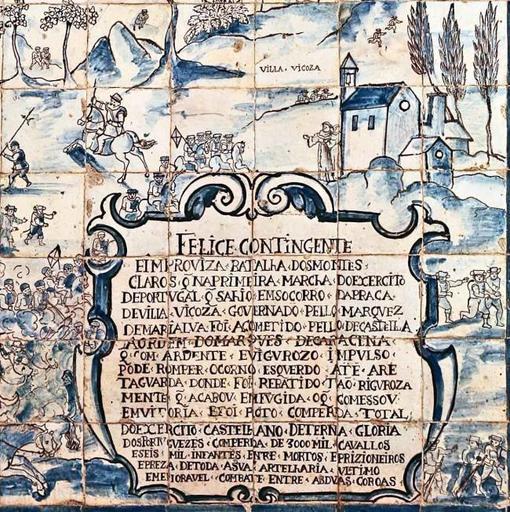 VILLA · VICOZA
FELICE CONTINGENTE
EIMPROVIZA · BATALHA · DOSMONTES ·
CLAROS · Q̃ NAPRIMEIRA · MARCHA · DOEXERCITO
DEPORTVGAL · Q̃ SAHIO · EMSOCORRO · DAPRACA ·
DEVILIA · VICOZA · GOVERNADO · PELLO · MARQVEZ
DEMARIALVA · FOI · ACOMETIDO · PELLO · DECASTELLA
AORDEM · DOMARQVES · DECARACINA
Q̃ COM · ARDENTE · EVIGVROZO · IMPVLSO ·
PODE · ROMPER · OCORNO · ESQVERDO · ATE · ARE
TAGVARDA · DONDE · FOI · REBATIDO · TAO · RIGVROZA
MENTE · Q̃ ACABOV · EMFVGIDA · OQ̃ · COMESSOV ·
EMVITORIA · EFOI · ROTO · COMPERDA · TOTAL
DOEXERCITO · CASTELHANO · DETERNA · GLORIA
DOSPORTVGVEZES · COMPERDA · DE 3000 MIL · CAVALLOS
ESEIS · MIL · INFANTES · ENTRE · MORTOS · EPRIZIONEIROS
EPREZA · DETODA · ASVA · ARTELHARIA · VLTIMO
EMEMORAVEL · COMBATE · ENTRE · ABDVAS · COROAS ·